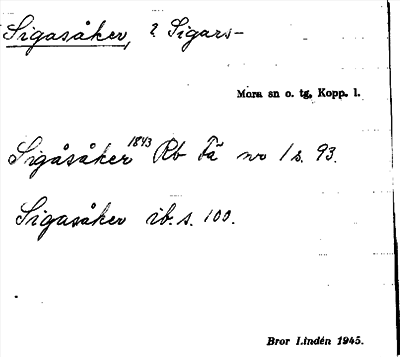 Sigasåker, 2 Sigars-
Mora sn o. tg, Kopp. l.
Sigåsåker 1843 Rb Fä nr 1 s. 93.
Sigasåker ib. s. 100.
Bror Lindén 1945.